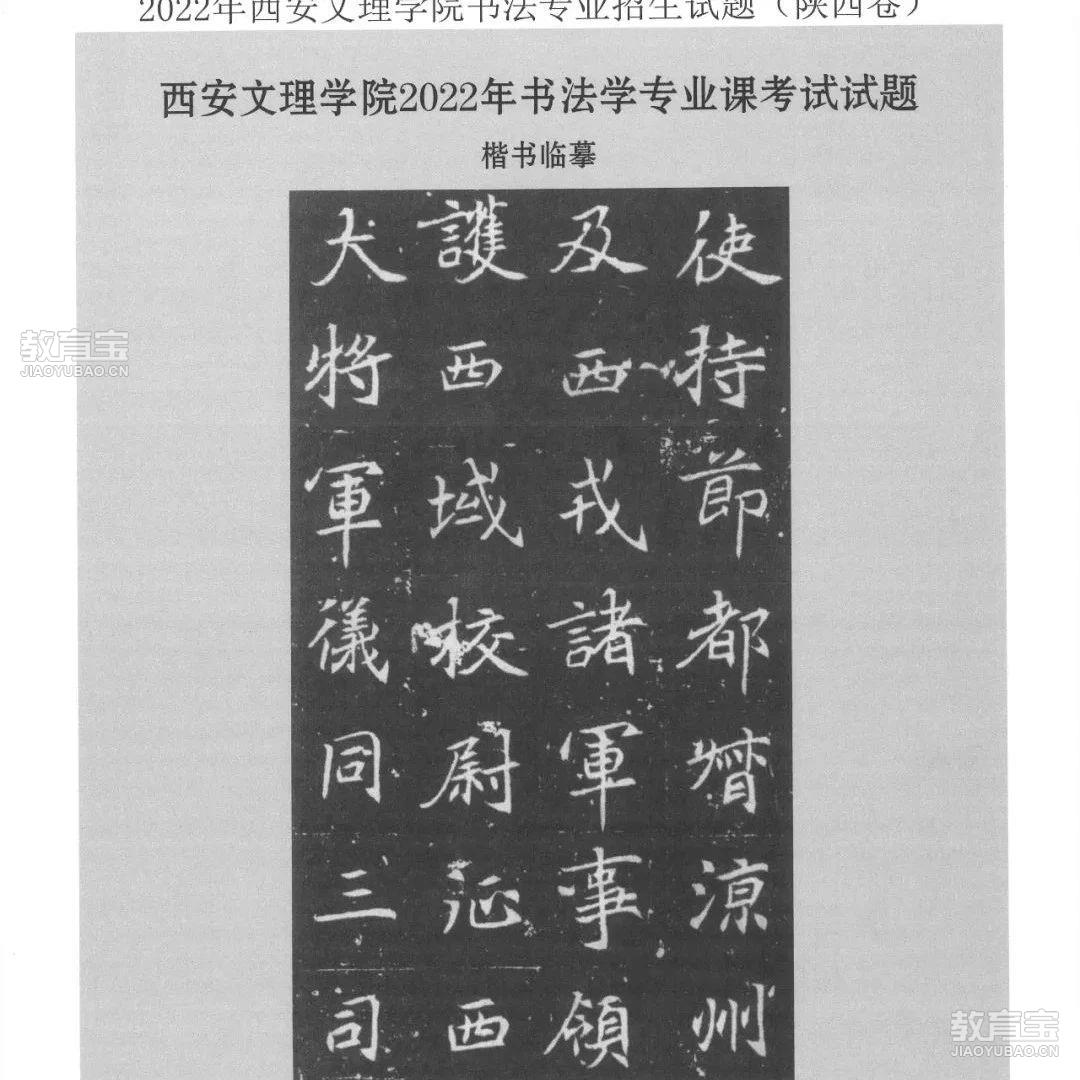 2022年西安文理学院书法专业招生试题（陕西卷）
西安文理学院2022年书法学专业课考试试题
楷书临摹
使持節都督涼州
及西戎諸軍事領
護西域校尉征西
大將軍儀同三司
教育宝
JIAOYUBAO.CN
教育宝
JIAOYUBAO.CN